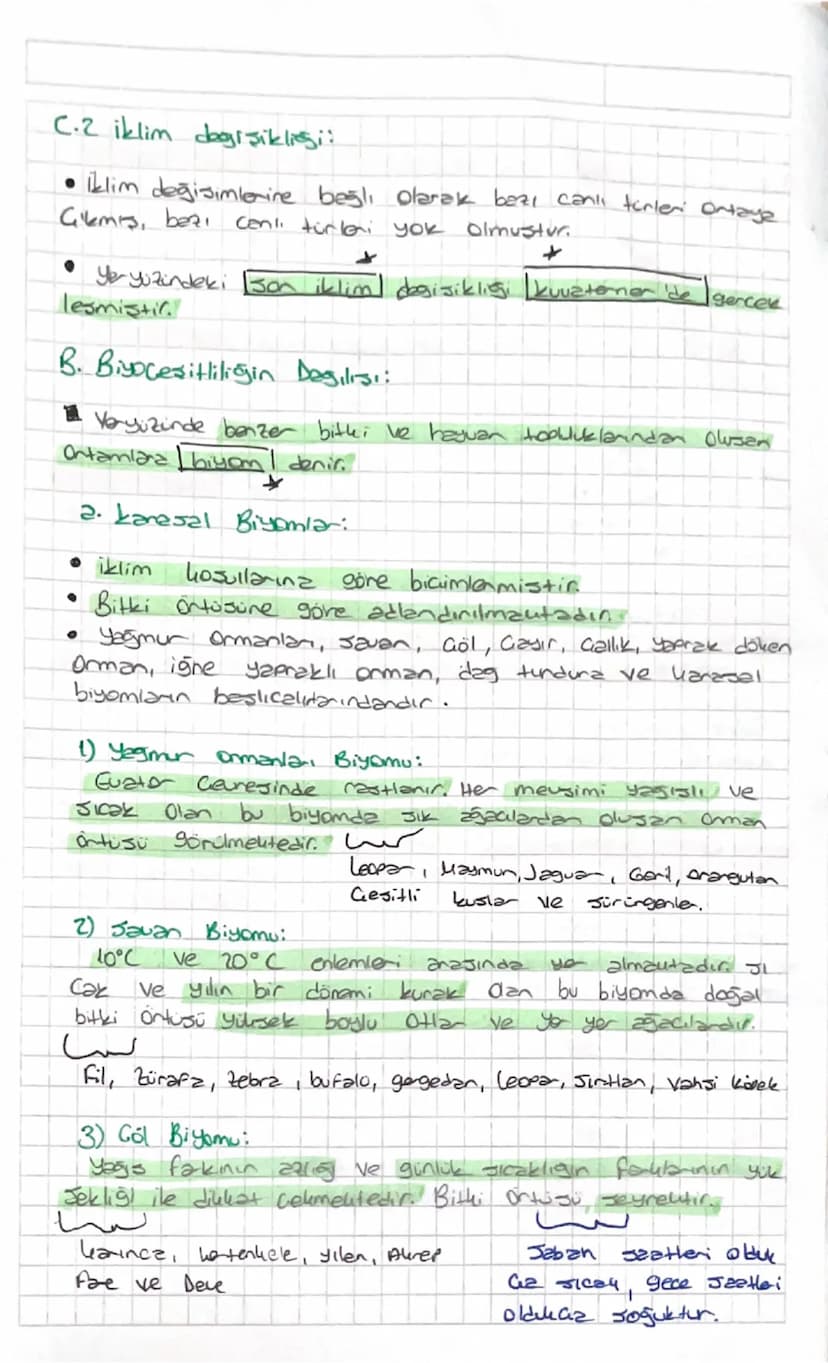 C.2 iklim değişikliği:
• İklim değişimlerine bağlı olarak bazı canlı türleri ortaya
Çıkmış, bazı canlı türleri yok olmuştur.
• Yeryüzündeki son iklim değişikliği kuvaterner'de gerçek
leşmiştir.
B. Biyoçeşitliliğin Dağılışı:
Yeryüzünde benzer bitki ve hayvan topluluklarından oluşan
Ortamlara biyom denir.
a. Karasal Biyomlar:
• iklim koşullarına göre biçimlenmiştir.
• Bitki örtüsüne göre adlandırılmaktadır.
• Yağmur Ormanları, Savan, Çöl, Çayır, Çallık, yaprak döken
Orman, iğne yapraklı orman, dağ tundura ve karasal
biyomların başlıcalarındandır.
1) Yağmur ormanları Biyomu:
Evator Çevresinde rastlanır. Her mevsimi yağışlı ve
Sıcak Olan bu biyomda sık ağaçlardan oluşan orman
örtüsü görülmektedir.
Leopar, Maymun, Jaguar, Goril, orangutan
Çeşitli kuşlar ve sürüngenler.
2) Savan Biyomu:
10°C ve 20°C enlemleri arasında yer almaktadır. Sı
Cak ve yılın bir dönemi kurak olan bu biyomda doğal
bitki örtüsü yüksek boylu Otlar ve yer yer ağaçlardır.
Fil, Zürafa, zebra, bufalo, gergedan, Leopar, Sırtlan, Vahşi Köpek
3) Çöl Biyomu:
Yağış farkının azlığı ve günlük sıcaklığın farklarının yük
sekliği ile dikkat çekmektedir. Bitki örtüsü, seyrektir.
Karınca, kertenkele, yılan, Akrep
Fare ve Deve
Sabah saatleri olduk
ça sıcak, gece saatleri
oldukça soğuktur.